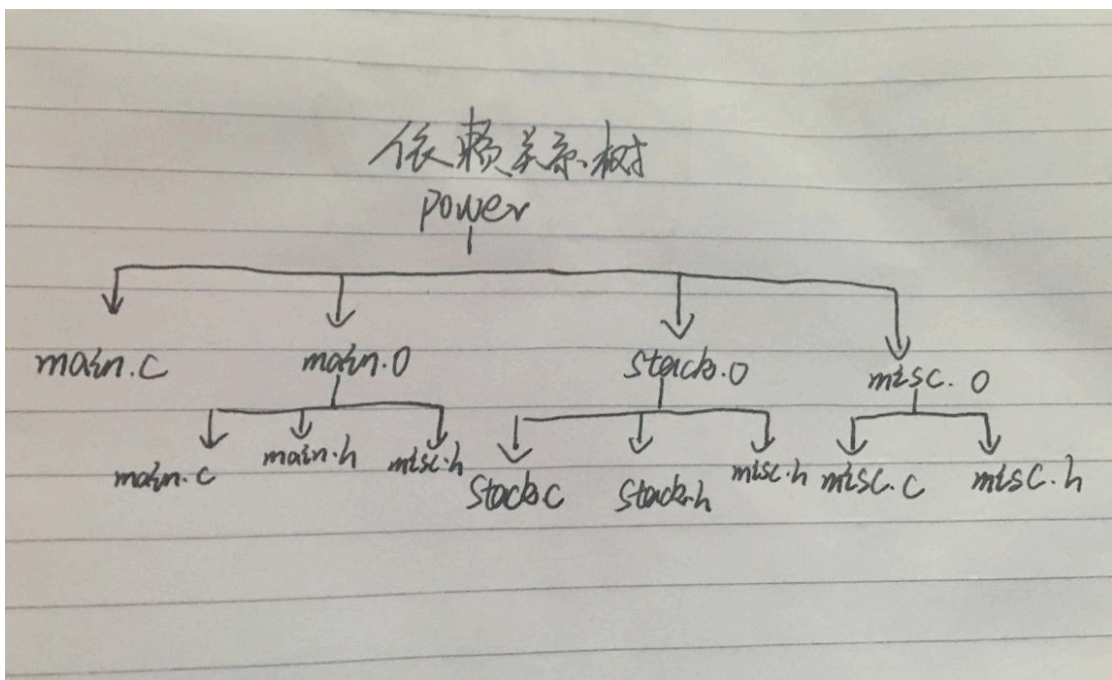 依赖关系树
power
main.c main.o stack.o misc.o
main.c main.h misc.h stack.c stack.h misc.h misc.c misc.h